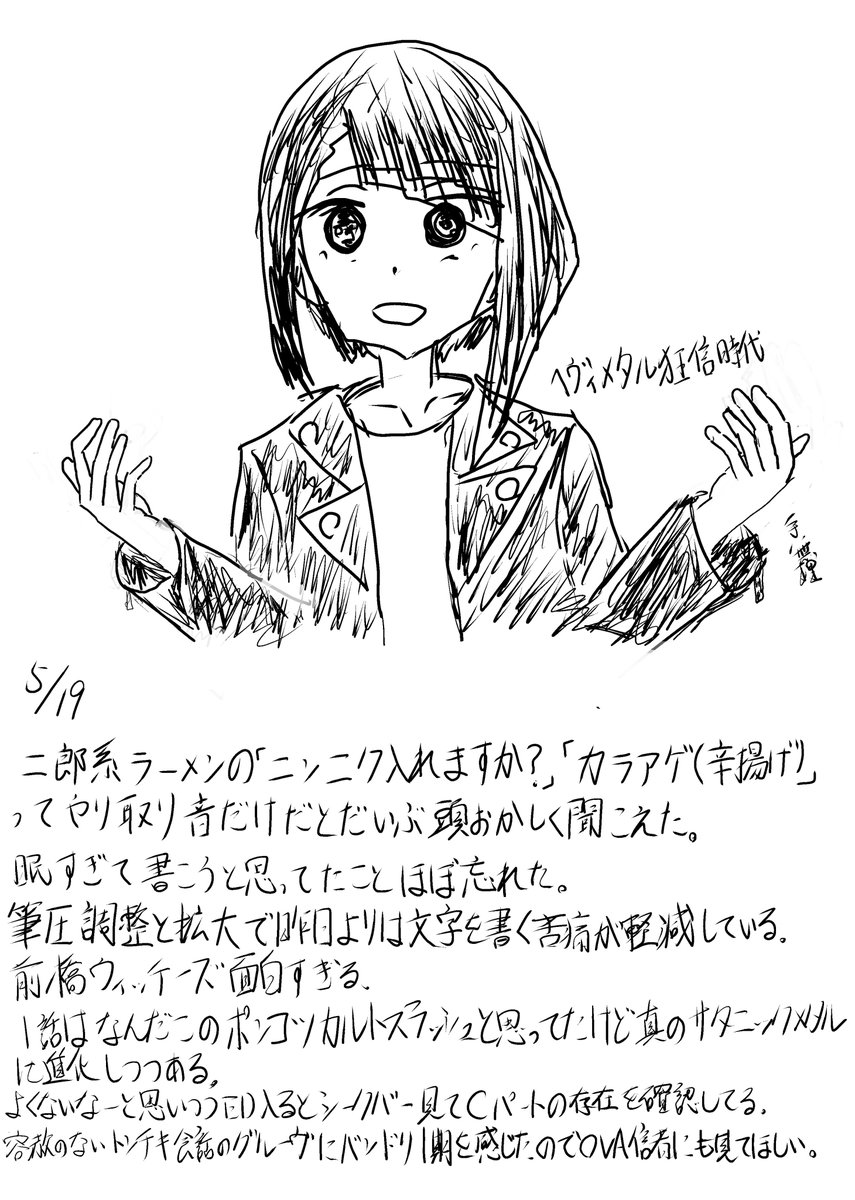 ヘヴィメタル狂信時代
手無理
5/19
二郎系ラーメンの「ニンニク入れますか?」「カラアゲ(辛揚げ)」
ってやり取り音だけだとだいぶ頭おかしく聞こえた。
眠すぎて書こうと思ってたことほぼ忘れた。
筆圧調整と拡大で昨日よりは文字を書く苦痛が軽減している。
前橋ウィッチーズ面白すぎる。
1話はなんだこのポンコツカルトスラッシュと思ってたけど真のサタニックメタル
に進化しつつある。
よくないなーと思いつつED入るとシークバー見てCパートの存在を確認してる。
容赦のないトンチキ会話のグルーヴにバンドリ1期を感じたのでOVA信者にも見てほしい。